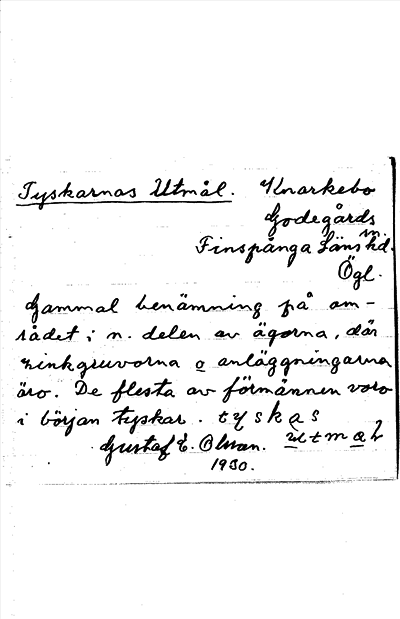 Tyskarnas Utmål. Knarkebo
Godegårds
sn.
Finspånga Läns hd.
Ögl.
Gammal benämning på om-
rådet i n. delen av ägorna, där
zinkgruvorna o anläggningarna
äro. De flesta av förmännen voro
i början tyskar. tyskas
utmal
Gustaf E. Olsson.
1930.